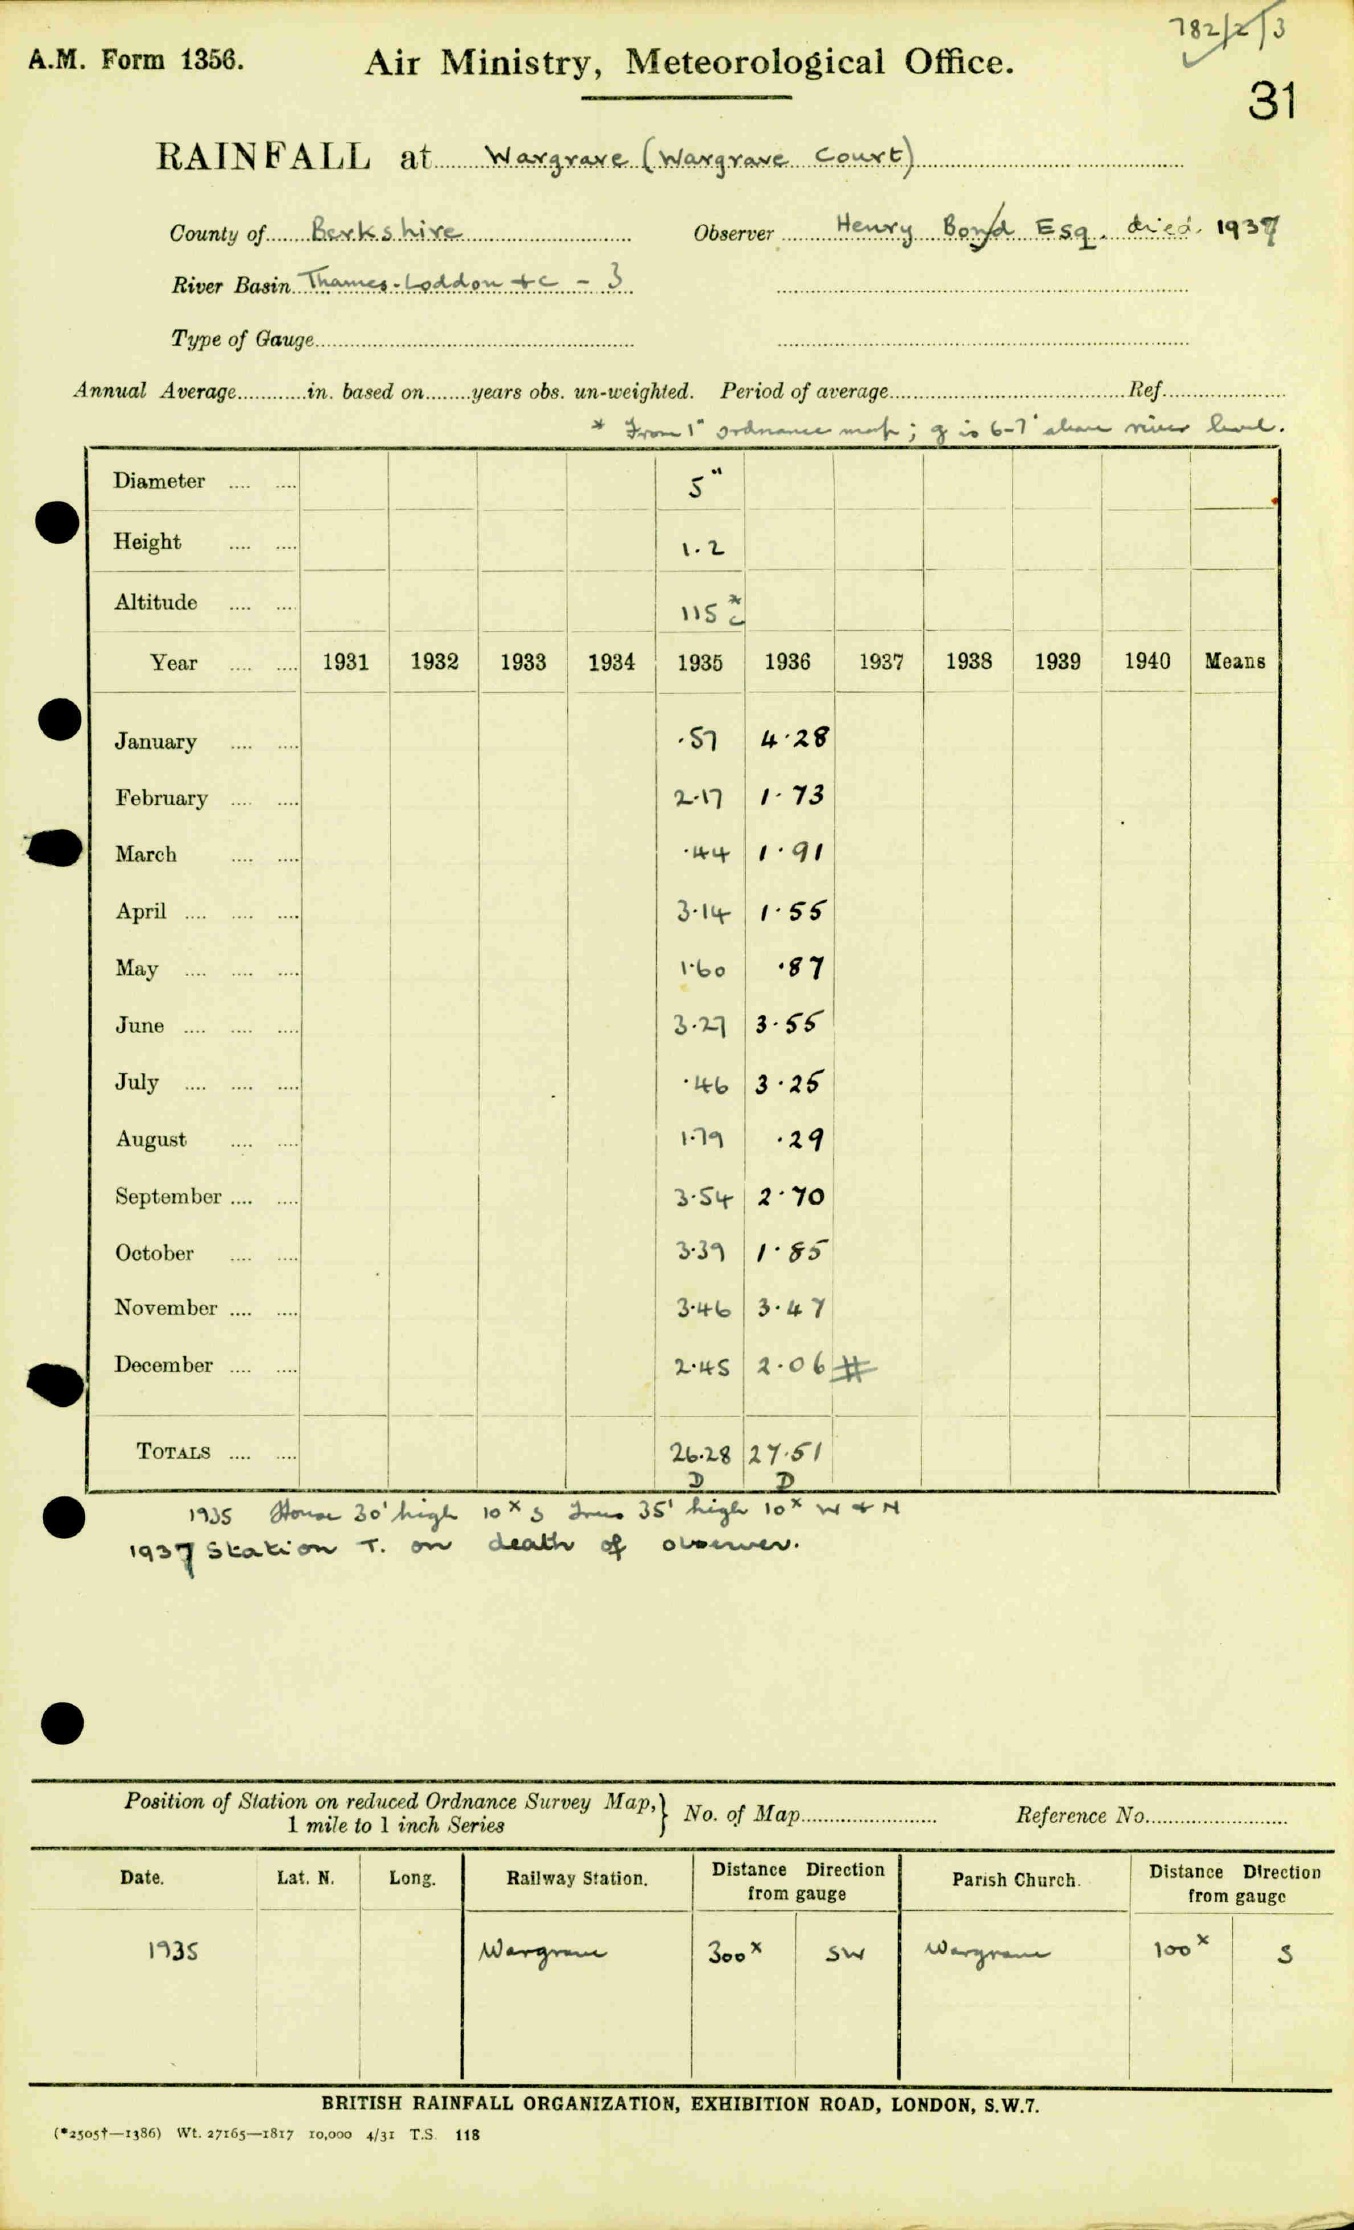 782/2/3
A.M. Form 1356. Air Ministry, Meteorological Office.
31
RAINFALL at Wargrave (Wargrave Court)
County of Berkshire Observer Henry Bond Esq. died. 1937
River Basin Thames-Loddon &c - 3
Type of Gauge
Annual Average in. based on years obs. un-weighted. Period of average Ref.
* From 1" ordnance map; g is 6-7' above river level.
Diameter 5"
Height 1.2
Altitude 115 * c
Year 1931 1932 1933 1934 1935 1936 1937 1938 1939 1940 Means
January .57 4.28
February 2.17 1.73
March .44 1.91
April 3.14 1.55
May 1.60 .87
June 3.27 3.55
July .46 3.25
August 1.79 .29
September 3.54 2.70
October 3.39 1.85
November 3.46 3.47
December 2.45 2.06 #
TOTALS 26.28 27.51
D D
1935 House 30' high 10x S Trees 35' high 10x W & N
1937 Station T. on death of observer.
Position of Station on reduced Ordnance Survey Map, } No. of Map Reference No.
1 mile to 1 inch Series
Date. Lat. N. Long. Railway Station. Distance Direction from gauge Parish Church. Distance Direction from gauge
1935 Wargrave 300x SW Wargrave 100x S
BRITISH RAINFALL ORGANIZATION, EXHIBITION ROAD, LONDON, S.W.7.
(*2505†—1386) Wt. 27165—1817 10,000 4/31 T.S. 118